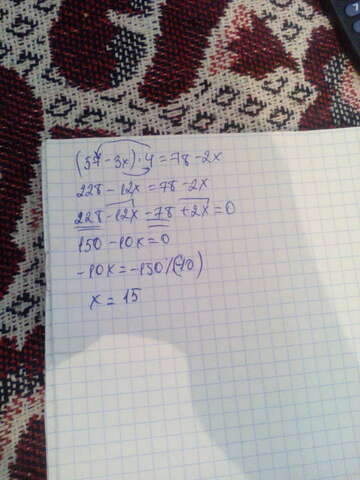 (57 - 3x) · 4 = 78 - 2x
228 - 12x = 78 - 2x
228 - 12x - 78 + 2x = 0
150 - 10x = 0
-10x = -150 /:(-10)
x = 15